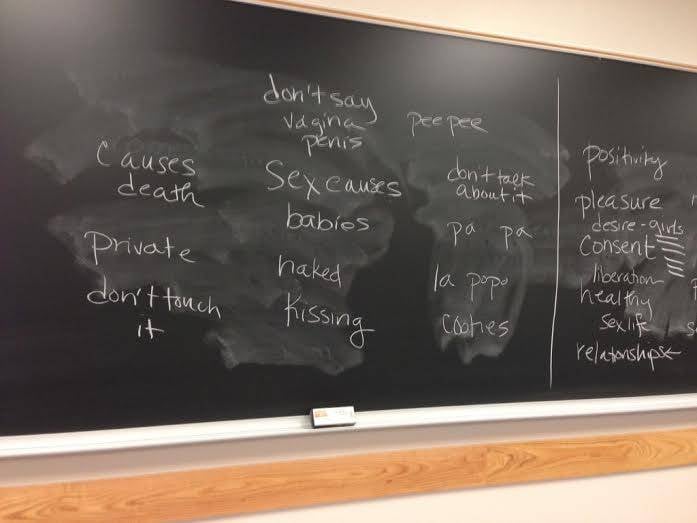 Causes
death
Private
don't touch
it
don't say
vagina
penis
Sex causes
babies
naked
Kissing
peepee
don't talk
about it
pa pa
la popo
Cooties
positivity
pleasure
desire - girls
Consent
liberation
healthy
sex life
relationships